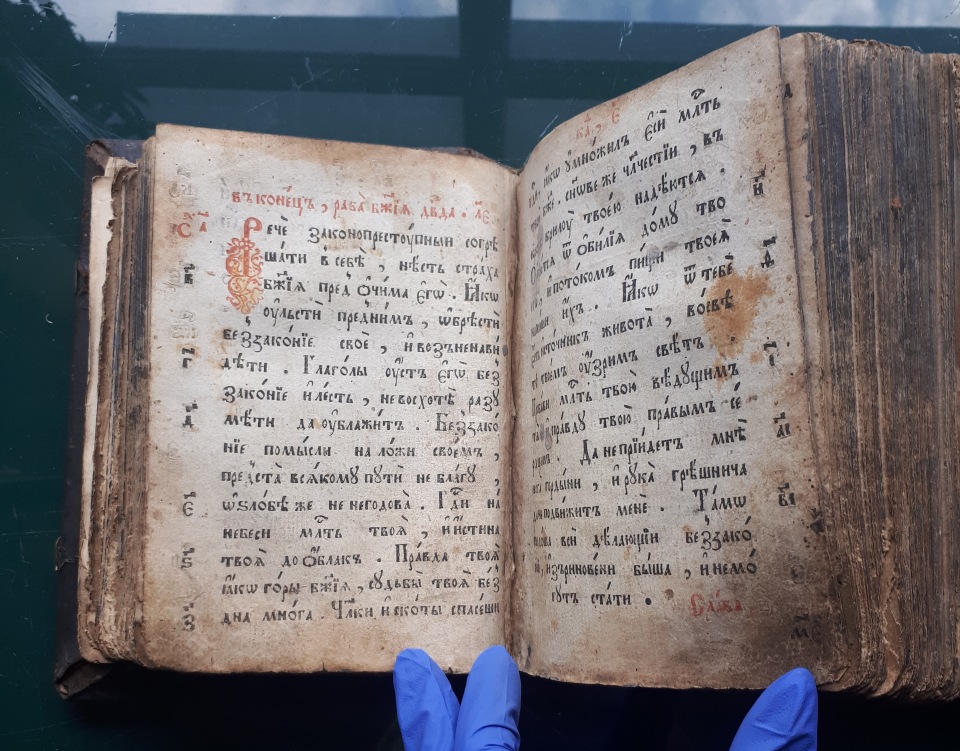 въ коне́цъ , раба̀ бж҃їѧ дв҃да . л҃е
Речѐ законопрестоу́пный согрѣ
ша́ти в себѣ̀ , нѣ́сть стра́ха
бж҃їѧ пред ѻ҆чи́ма є҆гѡ̀ . Ꙗ҆́кѡ
оульстѝ пре́дним̾ , ѡ҆брѣстѝ
в҃
беззако́нїе своѐ , и҆ возъненави́
г҃
дѣти . Глаго́лы оу҆́стъ є҆гѡ̀ без
зако́нїе и҆ ле́сть , не восхотѣ̀ разꙋ
д҃
мѣ́ти да оу҆блажи́тъ . Беззако́
нїе помы́сли на ло́жи свое́мъ ,
предста̀ всѧ́комꙋ пꙋтѝ не бла́гꙋ ,
є҃
ѡ҆ ѕло́бѣ же не негодова̀ . Гд҃и на́
небесѝ мл҃ть твоѧ̀ , и҆ и҆́стина
ѕ҃
твоѧ̀ до ѡ҆́блакъ . Пра́вда твоѧ̀
ꙗ҆́кѡ го́ры бж҃їѧ , сꙋдьбы̀ твоѧ̀ без
з҃
дна мно́га . Чл҃ки и҆ ско́ты спасе́ши
ꙗ҆́кѡ ᲂу҆мно́жилъ є҆сѝ мл҃ть
бж҃е . сн҃ове же чл҃честїи , въ
твое́ю надѣ́ютсѧ .
и҃
ѿ ѻ҆би́лїѧ до́мꙋ тво
и҆ пото́комъ пи́щи твоеѧ̀
и҆́хъ . Ꙗ҆́кѡ ѿ тебѐ
и҆сто́чник живота̀ , во свѣ́
свое́м оу҆́зрим свѣ́тъ .
мл҃ть твою̀ вѣ́дꙋщимъ
и҆ пра́вдꙋ твою̀ пра́вымъ се́
а҃і
Да не прїи́детъ мнѣ̀
горды́ни , и҆ рꙋка̀ грѣ́шнича
в҃і
подви́житъ менѐ . Та́мѡ
всѝ дѣ́лающїи беззако́
и҆зъринове́ни бы́ша , и҆ не мо́
гꙋтъ ста́ти .
Сла́ва